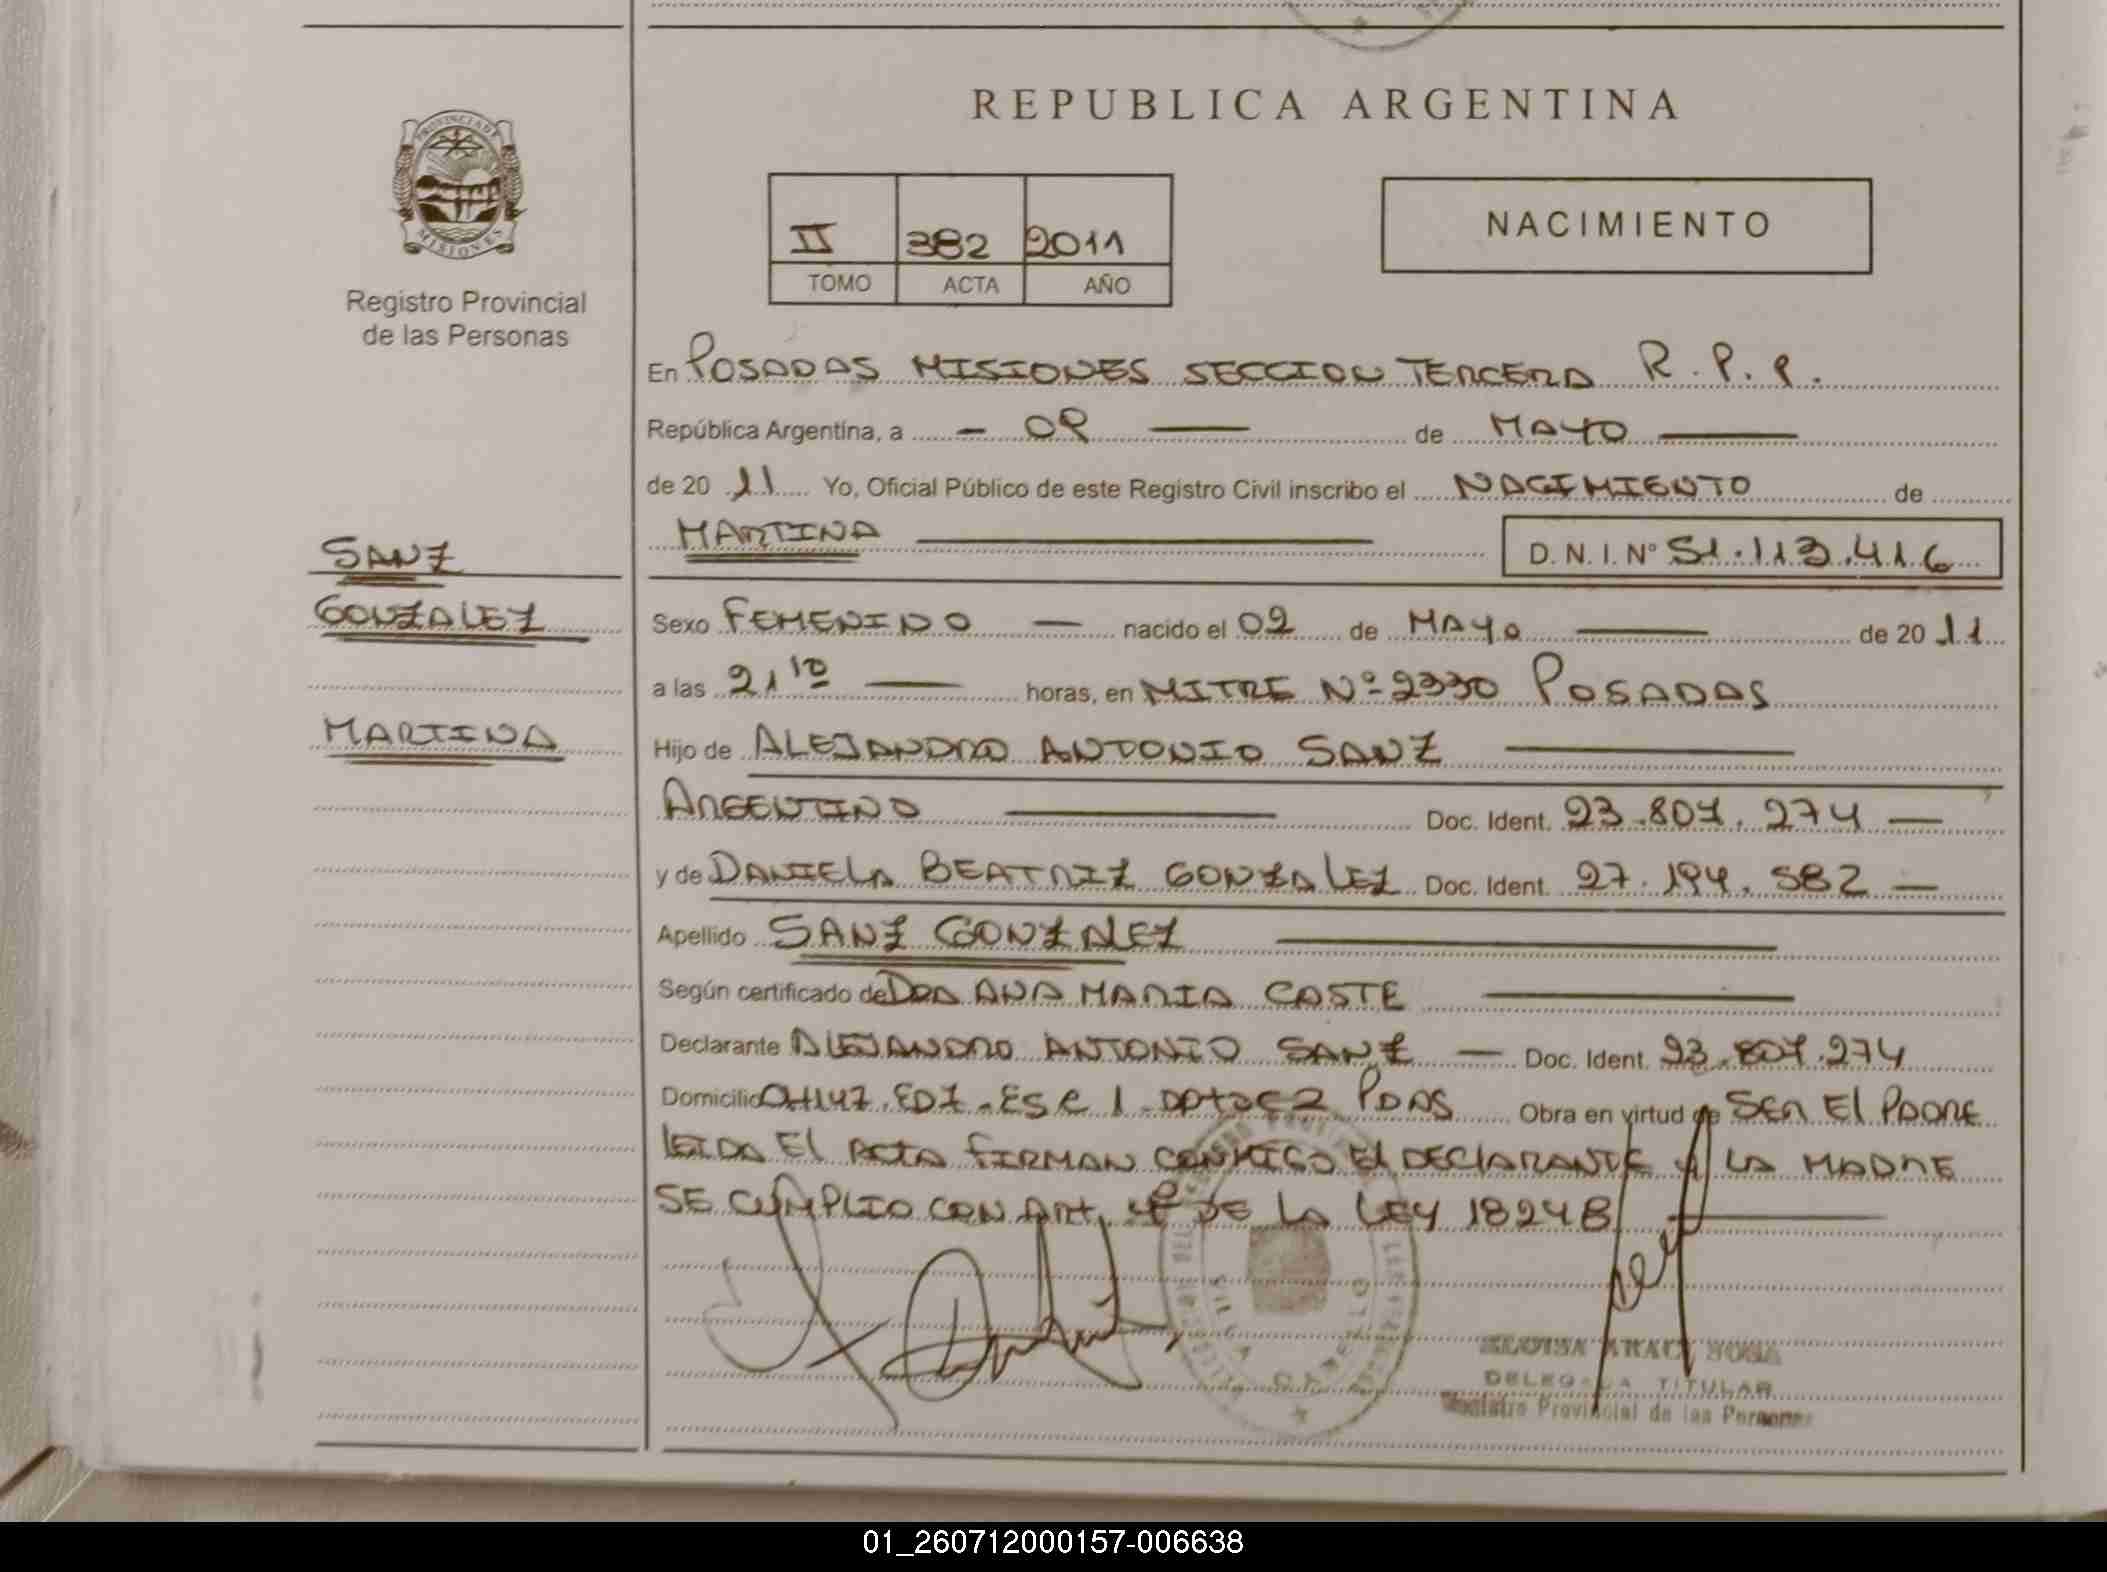 REPUBLICA ARGENTINA
PROVINCIA DE
MISIONES
Registro Provincial
de las Personas
II 382 2011
TOMO ACTA AÑO
NACIMIENTO
En POSADAS MISIONES SECCION TERCERA R.P.P.
República Argentina, a - 09 — de MAYO —
de 2011 Yo, Oficial Público de este Registro Civil inscribo el NACIMIENTO de
MARTINA — D. N. I. N° 51.113.416
SANZ
GONZALEZ
MARTINA
Sexo FEMENINO — nacido el 02 de MAYO — de 2011
a las 21 10 — horas, en MITRE Nº 2330 POSADAS
Hijo de ALEJANDRO ANTONIO SANZ —
ARGENTINO — Doc. Ident. 23.807.274 —
y de DANIELA BEATRIZ GONZALEZ Doc. Ident. 27.194.582 —
Apellido SANZ GONZALEZ —
Según certificado de DRA ANA MARIA COSTE —
Declarante ALEJANDRO ANTONIO SANZ — Doc. Ident. 23.807.274
Domicilio CH147. ED7. ESC 1 DPTO 2 PDAS Obra en virtud de SER El PADRE
LEIDA El ACTA FIRMAN CONMIGO El DECLARANTE y LA MADRE
SE CUMPLIO CON ART. 4º DE LA LEY 18248 —
VILLA CABELLO
DELEGADA TITULAR
Registro Provincial de las Personas
01_260712000157-006638